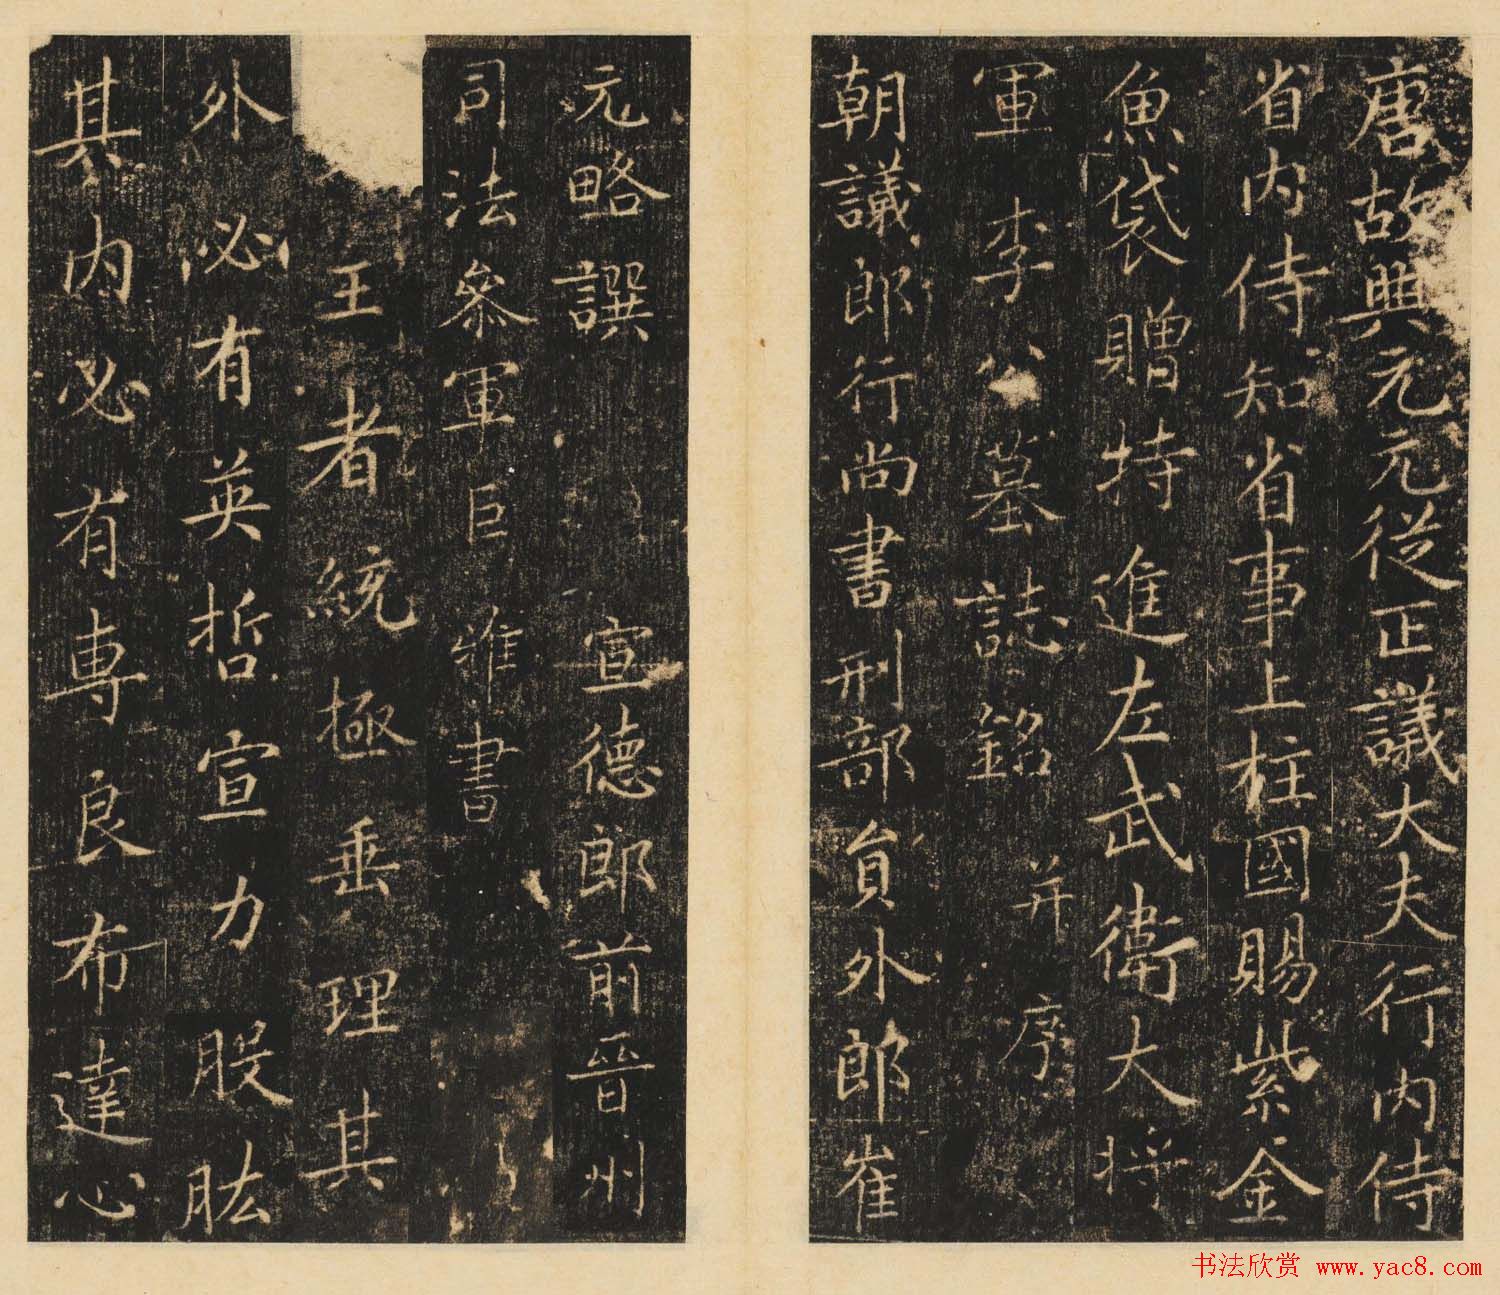 唐故興元元從正議大夫行內侍
省內侍知省事上柱國賜紫金
魚袋贈特進左武衛大將
軍李公墓誌銘并序
朝議郎行尚書刑部員外郎崔
元略譔 宣德郎前晉州
司法參軍巨雅書
王者統極垂理其
外必有英哲宣力股肱
其內必有專良布達心
书法欣赏 www.yac8.com